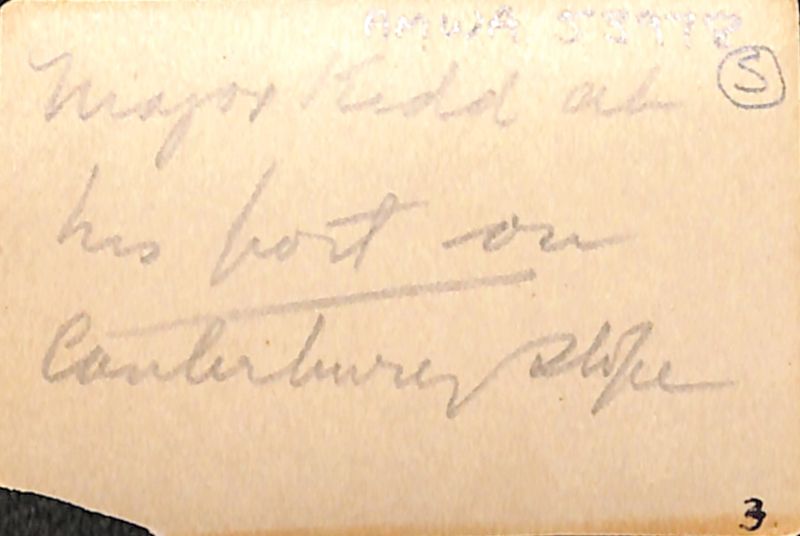 AMWA 53978
S
Major Kidd at
his post on
Canterbury slope
3